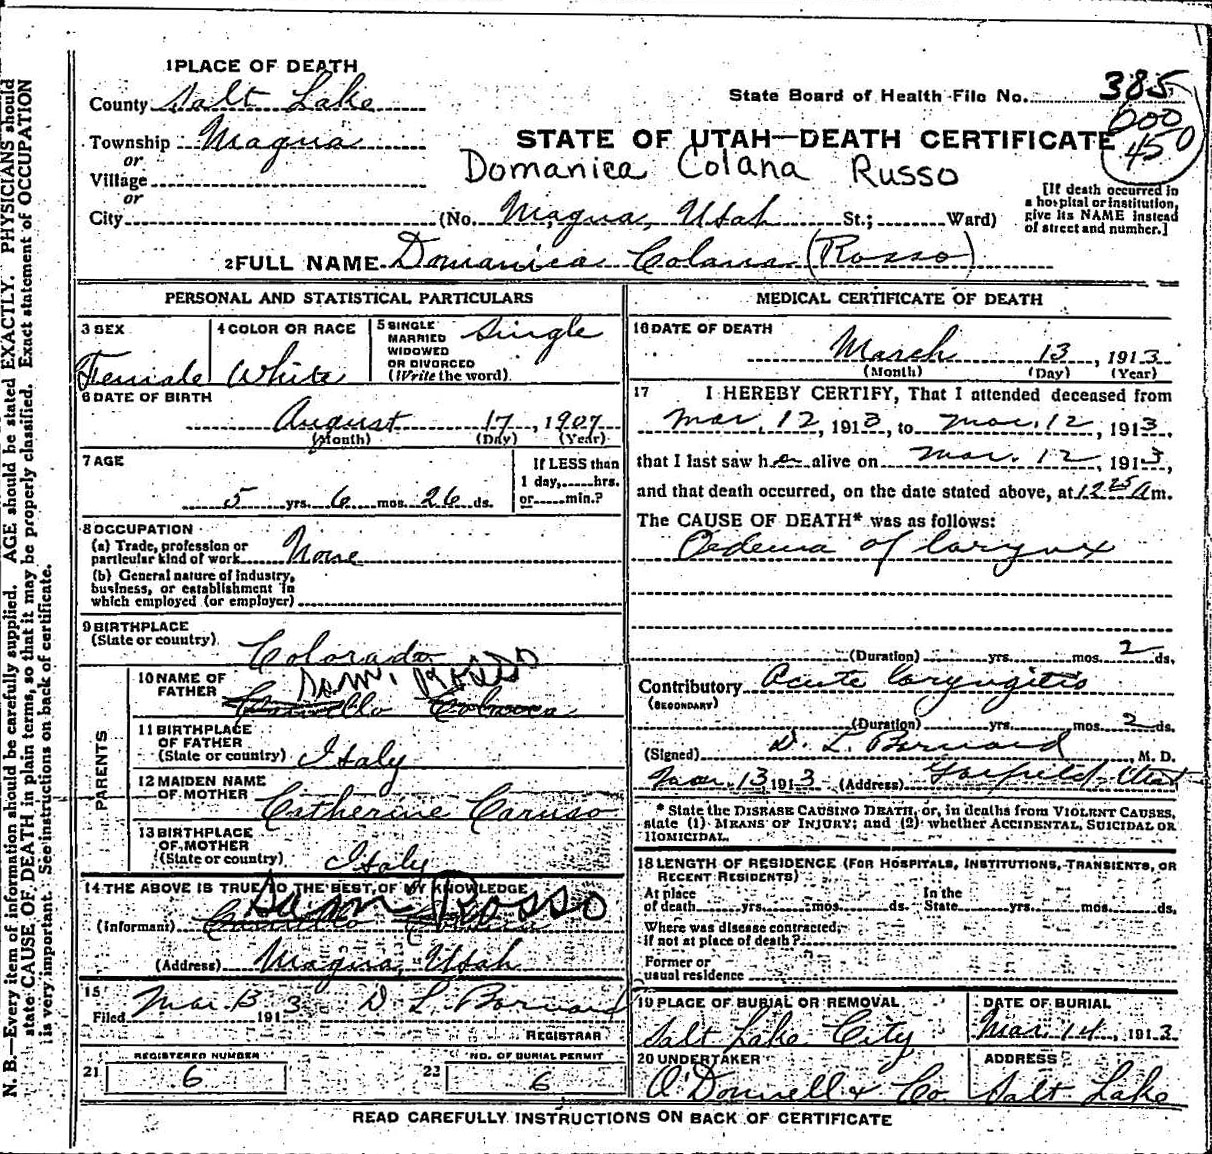 1 PLACE OF DEATH
County Salt Lake
State Board of Health File No. 385
600
450
Township Magna
or
Village
or
City
STATE OF UTAH—DEATH CERTIFICATE
Domanica Colana Russo
(No. Magna, Utah St.; Ward)
[If death occurred in a hospital or institution, give its NAME instead of street and number.]
2 FULL NAME Domanica Colana (Rosso)
PERSONAL AND STATISTICAL PARTICULARS
3 SEX
Female
4 COLOR OR RACE
White
5 SINGLE
MARRIED
WIDOWED
OR DIVORCED
(Write the word)
Single
6 DATE OF BIRTH
August 17, 1907
(Month) (Day) (Year)
7 AGE
5 yrs. 6 mos. 26 ds.
If LESS than
1 day, hrs.
or min.?
8 OCCUPATION
(a) Trade, profession or
particular kind of work None
(b) General nature of industry,
business, or establishment in
which employed (or employer)
9 BIRTHPLACE
(State or country)
Colorado
PARENTS
10 NAME OF
FATHER
Sam. Rosso
11 BIRTHPLACE
OF FATHER
(State or country) Italy
12 MAIDEN NAME
OF MOTHER
Catherine Caruso
13 BIRTHPLACE
OF MOTHER
(State or country) Italy
14 THE ABOVE IS TRUE TO THE BEST OF MY KNOWLEDGE
Sam Rosso
(Informant)
(Address) Magna, Utah
15
Filed Mar 13 1913 D L Barnard
REGISTRAR
21 REGISTERED NUMBER
6
22 NO. OF BURIAL PERMIT
6
MEDICAL CERTIFICATE OF DEATH
16 DATE OF DEATH
March 13, 1913
(Month) (Day) (Year)
17 I HEREBY CERTIFY, That I attended deceased from
Mar. 12, 1913, to Mar. 12, 1913,
that I last saw her alive on Mar. 12, 1913,
and that death occurred, on the date stated above, at 12 25 A m.
The CAUSE OF DEATH* was as follows:
Oedema of larynx
(Duration) yrs. mos. 2 ds.
Contributory Acute laryngitis
(SECONDARY)
(Duration) yrs. mos. 2 ds.
(Signed) D. L. Barnard, M. D.
Mar. 13 1913 (Address) Garfield, Utah
* State the DISEASE CAUSING DEATH, or, in deaths from VIOLENT CAUSES,
state (1) MEANS OF INJURY; and (2) whether ACCIDENTAL, SUICIDAL OR
HOMICIDAL.
18 LENGTH OF RESIDENCE (FOR HOSPITALS, INSTITUTIONS, TRANSIENTS, OR
RECENT RESIDENTS)
At place
of death yrs. mos. ds. In the
State yrs. mos. ds.
Where was disease contracted,
if not at place of death?
Former or
usual residence
19 PLACE OF BURIAL OR REMOVAL
Salt Lake City
DATE OF BURIAL
Mar 14, 1913
20 UNDERTAKER
O'Donnell & Co.
ADDRESS
Salt Lake
READ CAREFULLY INSTRUCTIONS ON BACK OF CERTIFICATE
N. B.—Every item of information should be carefully supplied. AGE should be stated EXACTLY. PHYSICIANS should
state CAUSE OF DEATH in plain terms, so that it may be properly classified. Exact statement of OCCUPATION
is very important. See instructions on back of certificate.